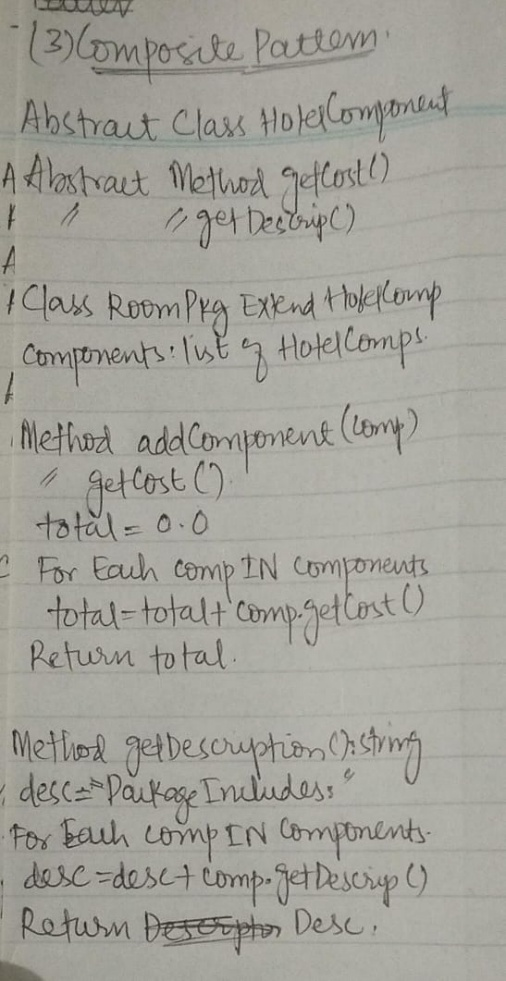 - (3) Composite Pattern.
Abstract Class HotelComponent
A Abstract Method getCost()
〃 〃 getDescrip()
A
Class RoomPkg Extend HotelComp
Components: list of HotelComps.
Method addComponent(comp)
〃 getCost()
total = 0.0
For Each comp IN Components
total = total + comp.getCost()
Return total.
Method getDescription(): string
desc = "Package Includes: "
For Each comp IN Components.
desc = desc + comp.getDescrip()
Return Desc.